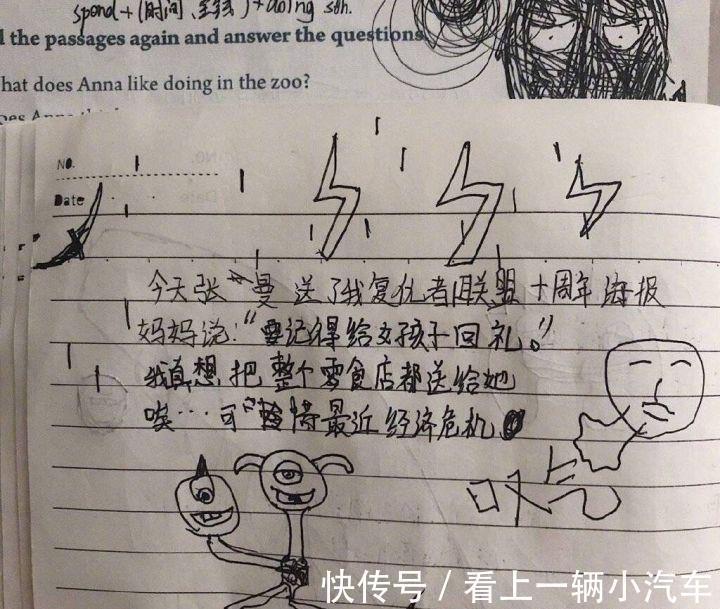 spend + (时间、金钱) + doing sth.
the passages again and answer the questions.
hat does Anna like doing in the zoo?
Anna
NO.
Date
今天张曼送了我复仇者联盟十周年海报
妈妈说：“要记得给女孩子回礼。”
我真想把整个零食店都送给她
唉…可惜最近经济危机
叹气
快传号 / 看上一辆小汽车